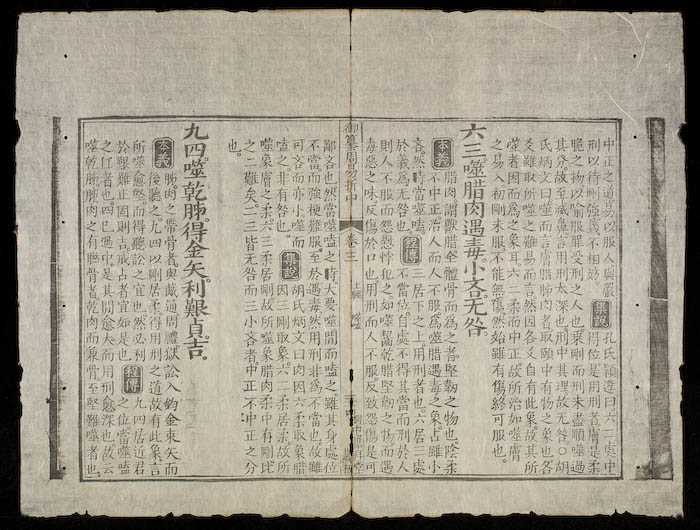 中正之道易以服人與嚴
刑以待剛強義不相妨 集說 孔氏穎達曰六二處中
得位是用刑者膚是柔
脆之物以喻服罪受刑之人也乘剛而刑未盡順噬過
其分故至滅鼻言用刑太深也刑中其理故无咎○胡
氏炳文曰噬而言膚腊胏肉者取頤中有物之象也各
爻雖取所噬之難易而言然因各爻自有此象故其所
噬者因而為之象耳六二柔而中正故所治如噬膚
之易入初剛未服不能无傷然始雖有傷終可服也
六三噬腊肉遇毒小吝无咎
本義 腊肉謂獸腊全體骨而為之者堅韌之物也陰柔
不中正治人而人不服為噬腊遇毒之象占雖小
吝然時當噬嗑
於義為无咎也 程傳 三居下之上用刑者也六居三處
不當位自處不得其當而刑於人
則人不服而怨懟悖犯之如噬齧乾腊堅韌之物而遇
毒惡之味反傷於口也用刑而人不服反致怨傷是可
御纂周易折中 卷三 上經 噬嗑
鄙吝也然當噬嗑之時大要噬間而嗑之雖其身處位
不當而強梗難服至於遇毒然用刑非為不當也故雖
可吝而亦小噬而
嗑之非有咎也 集說 胡氏炳文曰肉因六柔取象腊
因三剛取象六二柔居柔故所
噬象膚之柔六三柔居剛故所噬象腊肉柔中有剛比
之二難矣二三皆无咎而三小吝者中正不中正之分
也
九四噬乾胏得金矢利艱貞吉
本義 胏肉之帶骨者與胾通周禮獄訟入鈞金束矢而
後聽之九四以剛居柔得用刑之道故有此象言
所噬愈堅而得聽訟之宜也然必利
於艱難正固則吉戒占者宜如是也 程傳 九四居近君
之位當噬嗑
之任者也四已過中是其間愈大而用刑愈深也故云
噬乾胏胏肉之有聯骨者乾肉而兼骨至堅難噬者也